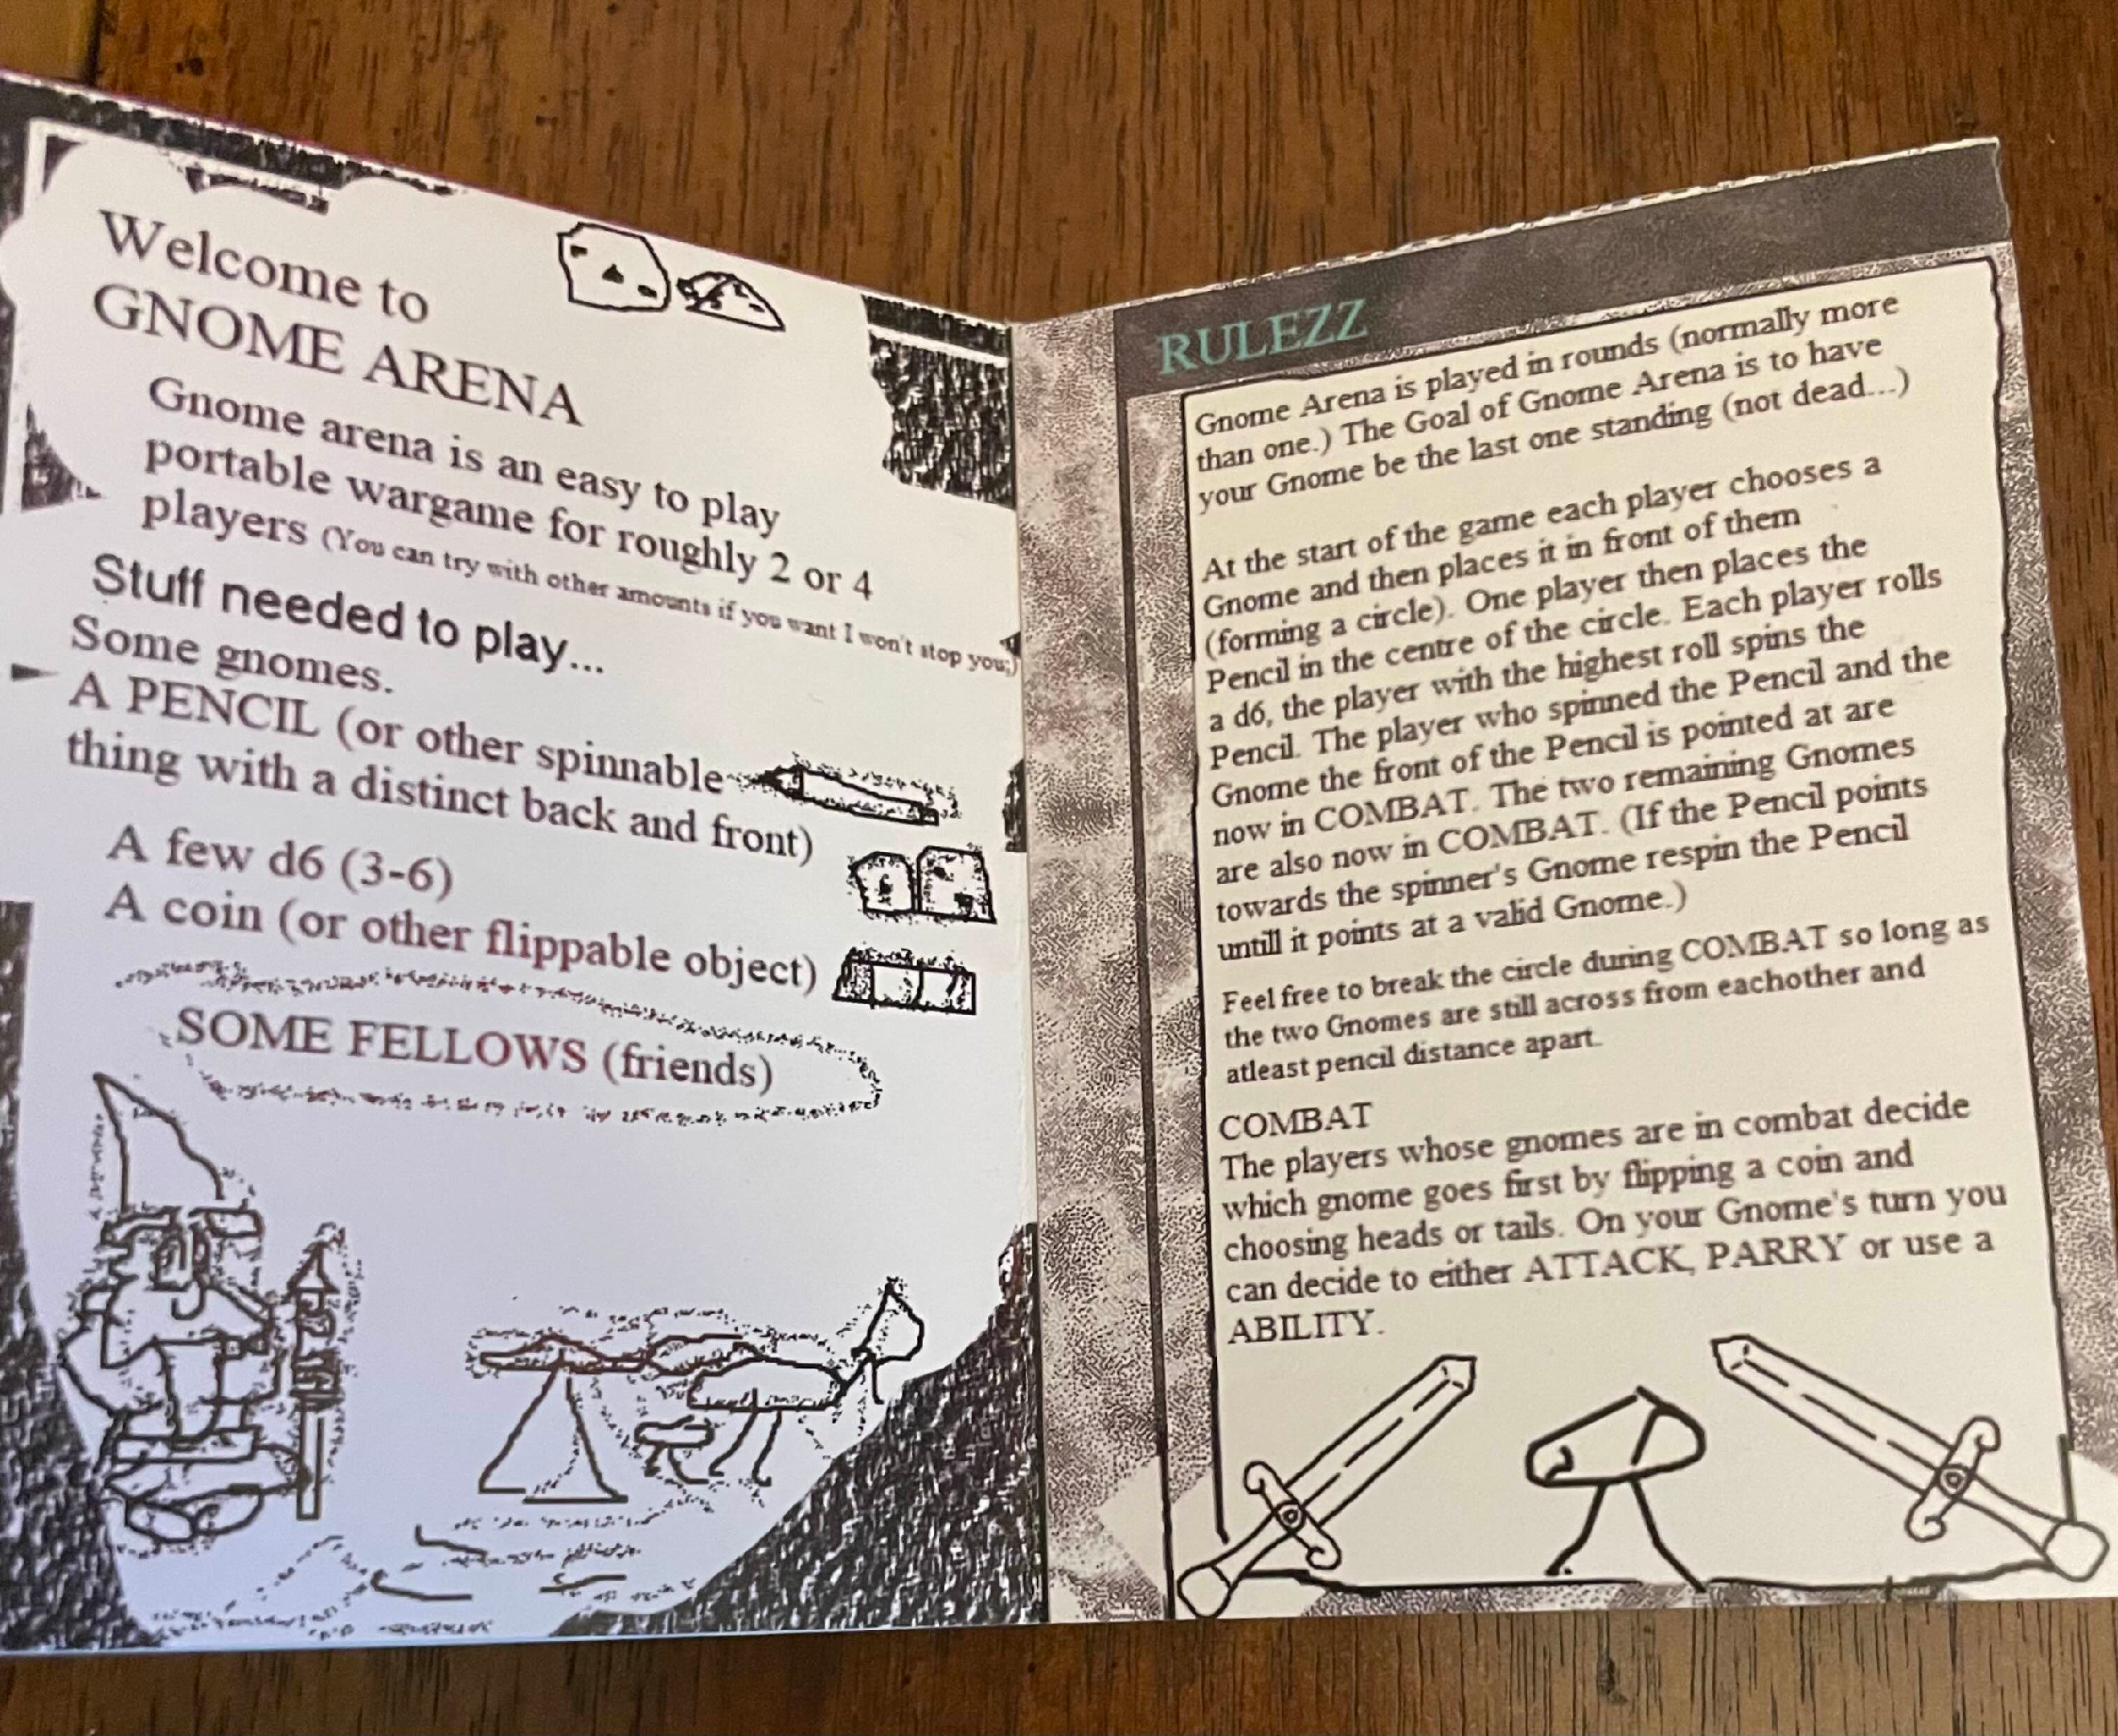 Welcome to
GNOME ARENA
Gnome arena is an easy to play
portable wargame for roughly 2 or 4
players (You can try with other amounts if you want I won't stop you;)
Stuff needed to play...
Some gnomes.
A PENCIL (or other spinnable
thing with a distinct back and front)
A few d6 (3-6)
A coin (or other flippable object)
SOME FELLOWS (friends)
RULEZZ
Gnome Arena is played in rounds (normally more
than one.) The Goal of Gnome Arena is to have
your Gnome be the last one standing (not dead...)
At the start of the game each player chooses a
Gnome and then places it in front of them
(forming a circle). One player then places the
Pencil in the centre of the circle. Each player rolls
a d6, the player with the highest roll spins the
Pencil. The player who spinned the Pencil and the
Gnome the front of the Pencil is pointed at are
now in COMBAT. The two remaining Gnomes
are also now in COMBAT. (If the Pencil points
towards the spinner's Gnome respin the Pencil
untill it points at a valid Gnome.)
Feel free to break the circle during COMBAT so long as
the two Gnomes are still across from eachother and
atleast pencil distance apart.
COMBAT
The players whose gnomes are in combat decide
which gnome goes first by flipping a coin and
choosing heads or tails. On your Gnome's turn you
can decide to either ATTACK, PARRY or use a
ABILITY.